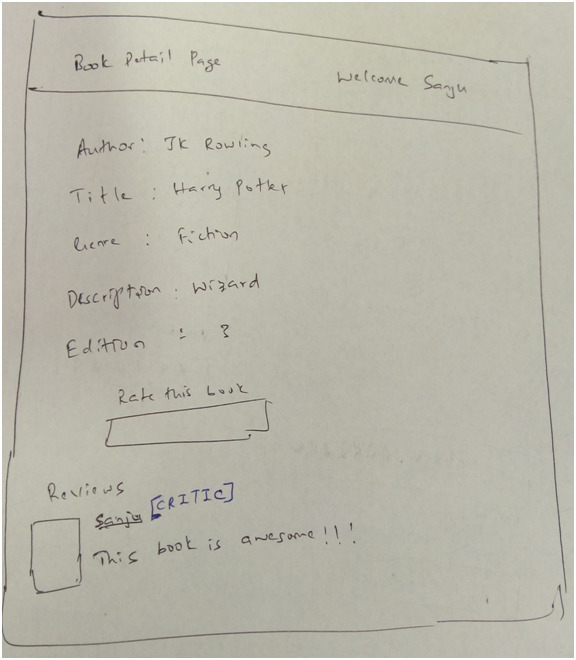 Book Detail Page
Welcome Sanju
Author: JK Rowling
Title : Harry Potter
Genre : Fiction
Description : Wizard
Edition : 3
Rate this book
Reviews
Sanju [CRITIC]
This book is awesome!!!